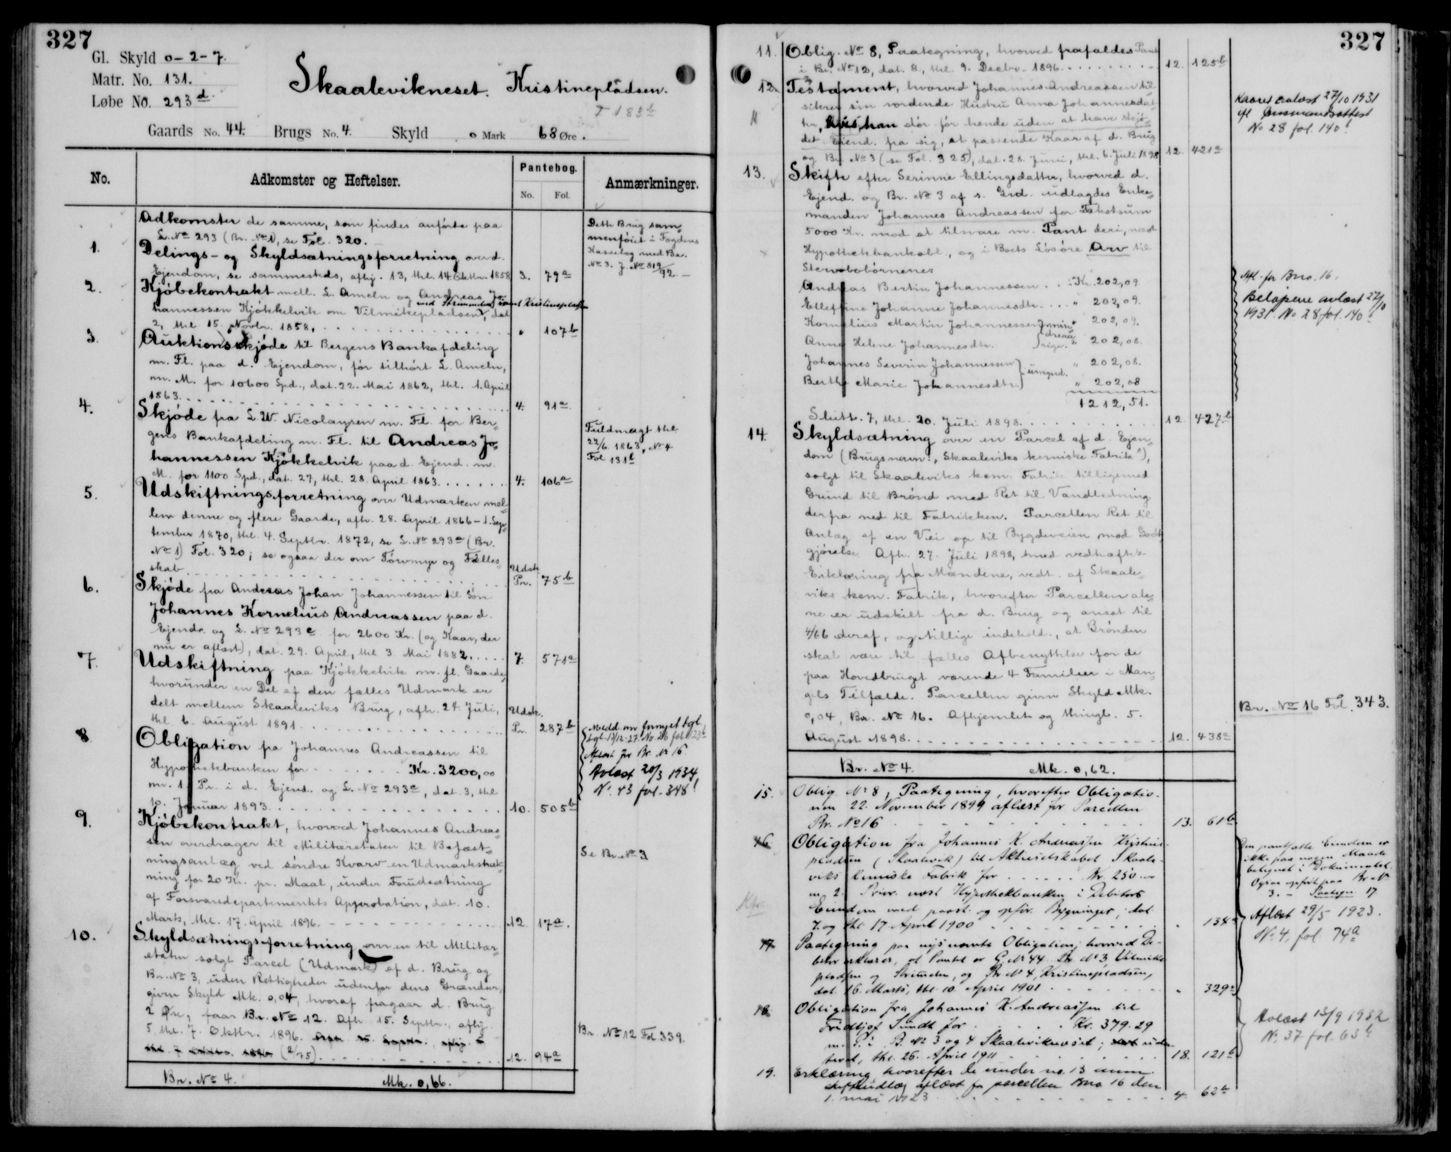 327
Gl. Skyld 0-2-7.
Matr. No. 131.
Løbe No. 293 d.
Skaalevikneset. Kristineplådsen.
Gaards No. 44. Brugs No. 4. Skyld 0 Mark 68 Øre.
No. Adkomster og Heftelser. Pantebog. Anmærkninger.
No. Fol.
Adkomster de samme, som findes anførte paa
L. No 293 (Br. No 1), se Fol. 320.
Dette Brug sam
menføiet i Fogdens
Kassebog med Br.
No 3.
1. Delings- og Skyldsætningsforretning over d.
Eiendom, se sammesteds, afhj. 13, thl. 14 Oktbr. 1858 3. 79 a
2. Kjøbekontrakt mell. L. Ameln og Andreas Jo-
hannessen Kjøkkelvik om Vilmikepladsen, dat.
2, thl. 15. Novbr. 1858, . . . " 107 b
3. Auktionsskjøde til Bergens Bankafdeling
m. Fl. paa d. Ejendom, før tilhørt L. Ameln,
m. M. for 10600 Spd., dat. 22. Mai 1862, thl. 1. April
1863. . . . 4. 91 a
4. Skjøde fra L. W. Nicolaysen m. Fl. for Ber-
gens Bankafdeling m. Fl. til Andreas Jo-
hannessen Kjøkkelvik paa d. Ejend. m.
M. for 1100 Spd., dat. 27, thl. 28. April 1863. . . . 4. 106 a
Fuldmagt thl
22/6 1863, No 4
Fol 131 b
5. Udskiftningsforretning over Udmarken mel-
lem denne og flere Gaarde, afh. 28. April 1866 - 1. Sep-
tember 1870, thl. 4. Septbr. 1872, se L. No 293 a (Br.
No 1) Fol. 320; se ogsaa der om Torvmyr og Fælles-
skab . . . Udsk. Pr. 75 b
6. Skjøde fra Andreas Johan Johannessen til Søn
Johannes Kornelius Andreassen paa d.
Ejendr. og L. No 293 c for 2600 Kr. (og Kaar, der
nu er aflæst), dat. 29. April, thl. 3. Mai 1882. . . . 7. 571 a
7. Udskiftning paa Kjøkkelvik m. fl. Gaarde,
hvorunder en Del af den fælles Udmark er
delt mellem Skaaleviks Brug, afh. 24 Juli,
thl. 6. August 1891 . . . Udsk. Pr. 287 b
8. Obligation fra Johannes Andreassen til
Hypothekbanken for . . . Kr. 3200,00
m. 1. Pr. i d. Ejend. og L. No 293 c, dat. 3, thl.
10. Januar 1893 . . . 10. 505 b
Aflæst for Br. No 16
Avlæst 20/3 1934,
No. 43 fol. 348 b
9. Kjøbekontrakt, hvorved Johannes Andreas-
sen overdrager til Militæretaten til Befæst-
ningsanlæg ved søndre Kvarven Udmarksstræk-
ning for 20 Kr. pr. Maal, under Forudsætning
af Forsvarsdepartementets Approbation, dat. 10.
Marts, thl. 17. April 1896. . . . 12. 17 a
Se Br. No 3
10. Skyldsætningsforretning over en til Militær-
etaten solgt Parcel (Udmark) af d. Brug og
Br. No 3, uden Rettigheder udenfor dens Grændser,
givn Skyld Mk. 0,04, hvoraf fragaar d. Brug
2 Øre, faar Br. No 12. Afh. 15. Septbr., afhj.
5, thl. 7. Oktbr. 1896.
(2/75) . . . 12. 94 a
Br. No 12 Fol 339.
Br. No 4. Mk. 0,66.
327
11. Oblig. No 8, Paategning, hvorved frafaldes Pant
i Br. No 12, dat. 8, thl. 9. Decbr. 1896. . . . 12. 125 b
12. Testament, hvorved Johannes Andreassen til-
sikrer sin vordende Hustru Anna Johannesdat-
ter, hvis han dør før hende uden at have skjø-
det Eiend. fra sig, et passende Kaar af d. Brug
og Br. No 3 (se Fol. 325), dat. 28. Juni, thl. 6. Juli 1898 12. 421 a
Kaaret avlæst 27/10 1931
No 28 fol. 140 b
13. Skifte efter Serinne Ellingsdatter, hvorved d.
Ejend. og Br. No 3 af s. Grd. udlagdes Enke-
manden Johannes Andreassen for Takstsum
5000 Kr. mod at tilsvare m. Pant deri, næst
Hypothekbanken, og i Boets Løsøre Arv til
Stervbobørnene:
Andreas Bertin Johannessen . . . Kr. 202,09.
Ellefine Johanne Johannesdtr. . . . " 202,09.
Kornelius Martin Johannessen " 202,09.
Anna Helene Johannesdtr. " 202,08.
Johannes Severin Johannessen } umynd. " 202,08.
Berthe Marie Johannesdtr. " 202,08
1212,51.
Slutt. 7, thl. 20. Juli 1898. . . . 12. 427 b
Afl. for Brno. 16.
Beløpene avlæst 27/10
1931 No 28 fol. 140 b
14. Skyldsætning over en Parcel af d. Ejen-
dom (Brugsnavn: "Skaaleviks kemiske Fabrik"),
solgt til Skaaleviks kem. Fabrik tilligemed
Grund til Brønd med Ret til Vandledning
derfra ned til Fabriken. Parcellen Ret til
Anlæg af en Vei op til Bygdeveien mod Godt-
gjørelse. Afh. 27. Juli 1898, med vedhæftet
Erklæring fra Mændene, vedt. af Skaale-
viks kem. Fabrik, hvorefter Parcellen ale-
ne er udskilt fra d. Brug og anset til
4/66 deraf, og tillige indehold., at Brønden
skal være til fælles Afbenyttelse for de
paa Hovedbruget værende 4 Familier i Man-
gels Tilfælde. Parcellen given Skyld Mk.
0,04, Br. No 16. Afhjemlet og thingl. 5.
August 1898. . . . 12. 438 a
Br. No 16 Fol. 343.
Br. No 4. Mk. 0,62.
15. Oblig. No 8, Paategning, hvorefter Obligatio-
nen 22. November 1899 aflæst for Parcellen
Br. No 16 . . . 13. 61 b
16. Obligation fra Johannes K. Andreassen Kristine-
pladsen (Skaalevik) til Aktieselskabet Skaale-
viks kemiske Fabrik for . . . Kr. 250
m. 2. Prior. næst Hypothekbanken i Debitors
Eiendom med paast. og opfør. Bygninger, dat.
7. og thl. 17. April 1900 . . . " 138 a
Aflæst 29/5 1923.
No. 4, fol. 74 a
17. Paategning paa nysnævnte Obligation, hvorved De-
bitor erklærer, at Pantet er G. No 44 Br. No 3 Vilmike-
pladsen og Strømmen, og Br. No 4, Kristinepladsen,
dat. 16. Marts, thl. 10. April 1901 . . . " 329 a
18. Obligation fra Johannes K. Andreassen til
Fridtjof Sundt for . . . Kr. 379.29
m. P. i B. No 3 og 4 Skaalevikneset;
thl. 26. April 1911 . . . 18. 121 b
Avlæst 13/9 1932
No. 37 fol. 63 b
19. Erklæring hvorefter de under no. 13 anm.
skifteudlæg aflæst for parcellen Brno 16 den
1. mai 1923 . . . 4. 62 b